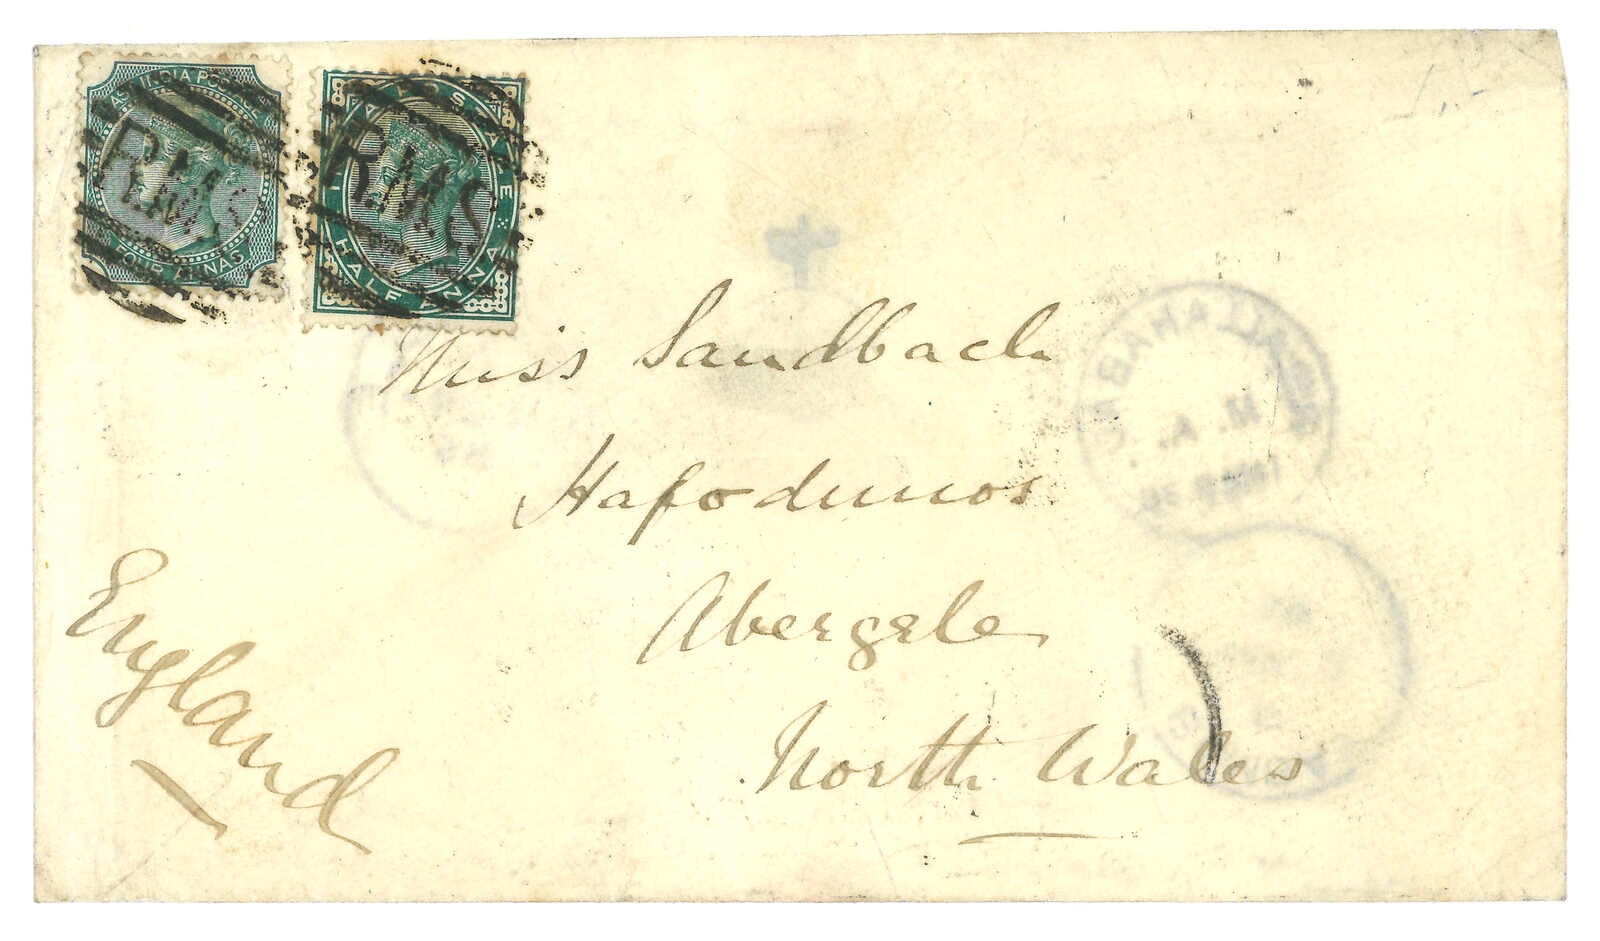 EAST INDIA POSTAGE
FOUR ANNAS
RMS
INDIA POSTAGE
HALF ANNA
RMS
Miss Sandbach
Hafodunos
Abergele
North Wales
England
ALLAHABAD
M. A.